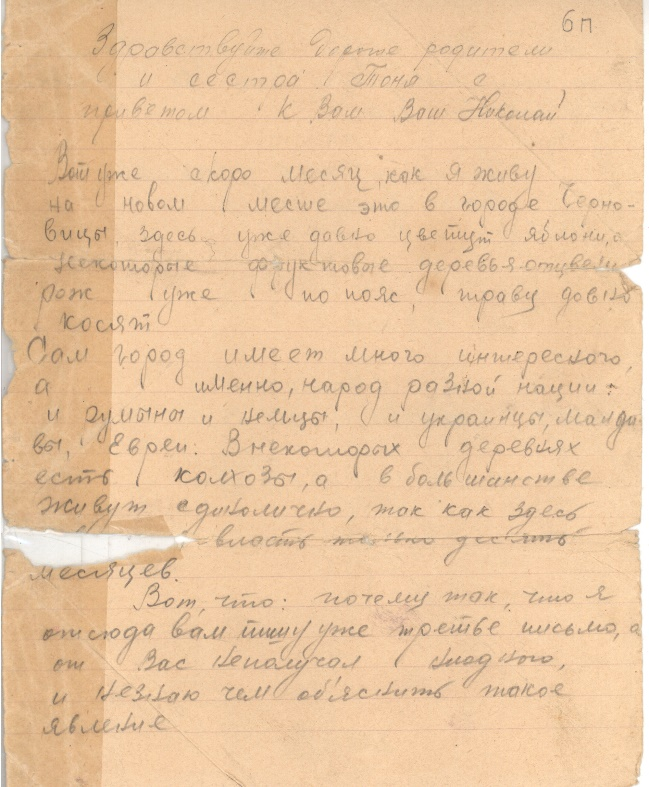 6п
Здравствуйте Дороге родители
и сестра Тоня с
приветом к Вам Ваш Николай
Вот уже скоро месяц, как я живу
на новом месте это в городе Черно-
вицы. здесь уже давно цветут яблони, а
некоторые фруктовые деревья отцвели
рож уже по пояс, траву давно
косят
Сам город имеет много интересного,
а именно, народ разной нации:
и румыны и немцы, и украинцы, малда-
вы, Евреи. Внекоторых деревнях
есть колхозы, а в большинстве
живут единолично, так как здесь
власть только десять
месяцев.
Вот, что: почему так, что я
отсюда вам пишу уже третье письмо, а
от Вас неполучал ниодного,
и незнаю чем об'яснить такое
явление